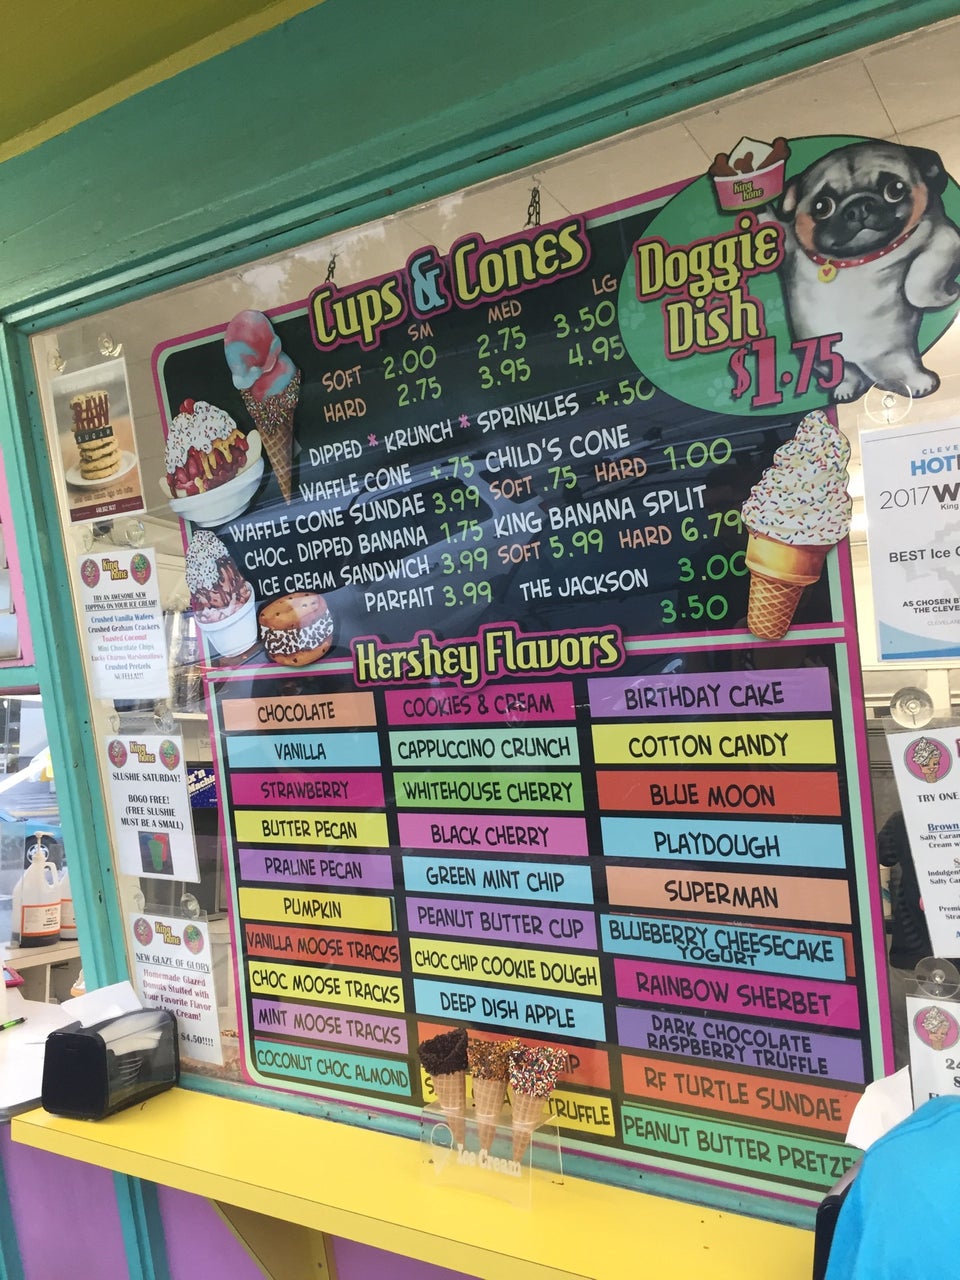 Cups & Cones
SM MED LG
SOFT 2.00 2.75 3.50
HARD 2.75 3.95 4.95
DIPPED * KRUNCH * SPRINKLES +.50
WAFFLE CONE +.75
WAFFLE CONE SUNDAE 3.99
CHOC. DIPPED BANANA 1.75
ICE CREAM SANDWICH 3.99
PARFAIT 3.99
CHILD'S CONE
SOFT .75 HARD 1.00
KING BANANA SPLIT
SOFT 5.99 HARD 6.79
THE JACKSON 3.00
3.50
King Kone
Doggie
Dish
$1.75
Hershey Flavors
CHOCOLATE
VANILLA
STRAWBERRY
BUTTER PECAN
PRALINE PECAN
PUMPKIN
VANILLA MOOSE TRACKS
CHOC MOOSE TRACKS
MINT MOOSE TRACKS
COCONUT CHOC ALMOND
COOKIES & CREAM
CAPPUCCINO CRUNCH
WHITEHOUSE CHERRY
BLACK CHERRY
GREEN MINT CHIP
PEANUT BUTTER CUP
CHOC CHIP COOKIE DOUGH
DEEP DISH APPLE
TRUFFLE
BIRTHDAY CAKE
COTTON CANDY
BLUE MOON
PLAYDOUGH
SUPERMAN
BLUEBERRY CHEESECAKE
YOGURT
RAINBOW SHERBET
DARK CHOCOLATE
RASPBERRY TRUFFLE
RF TURTLE SUNDAE
PEANUT BUTTER PRETZE
Ice Cream
RAW
SUGAR
King
Kone
TRY AN AWESOME NEW
TOPPING ON YOUR ICE CREAM!
Crushed Vanilla Wafers
Crushed Graham Crackers
Toasted Coconut
Mini Chocolate Chips
Lucky Charms Marshmallows
Crushed Pretzels
NUTELLA!!!
King
Kone
SLUSHIE SATURDAY!
BOGO FREE!
(FREE SLUSHIE
MUST BE A SMALL)
King
Kone
NEW GLAZE OF GLORY
Homemade Glazed
Donuts Stuffed with
Your Favorite Flavor
of Ice Cream!
$4.50!!!!
CLEVE
HOT
2017 W
King
BEST Ice
AS CHOSEN B
THE CLEVE
CLEVELAN
TRY ONE
Brown
Salty Cara
Cream w
Indulgen
Salty Car
Premi
Stra
24